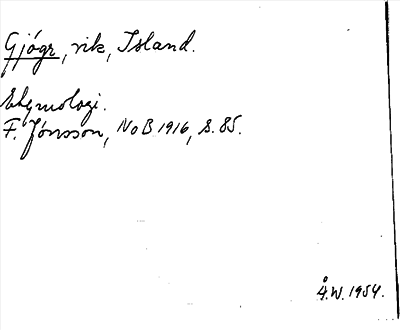 Gjögr, vik, Island.
Etymologi.
F. Jónsson, NoB 1916, s. 85.
Å.W. 1954.